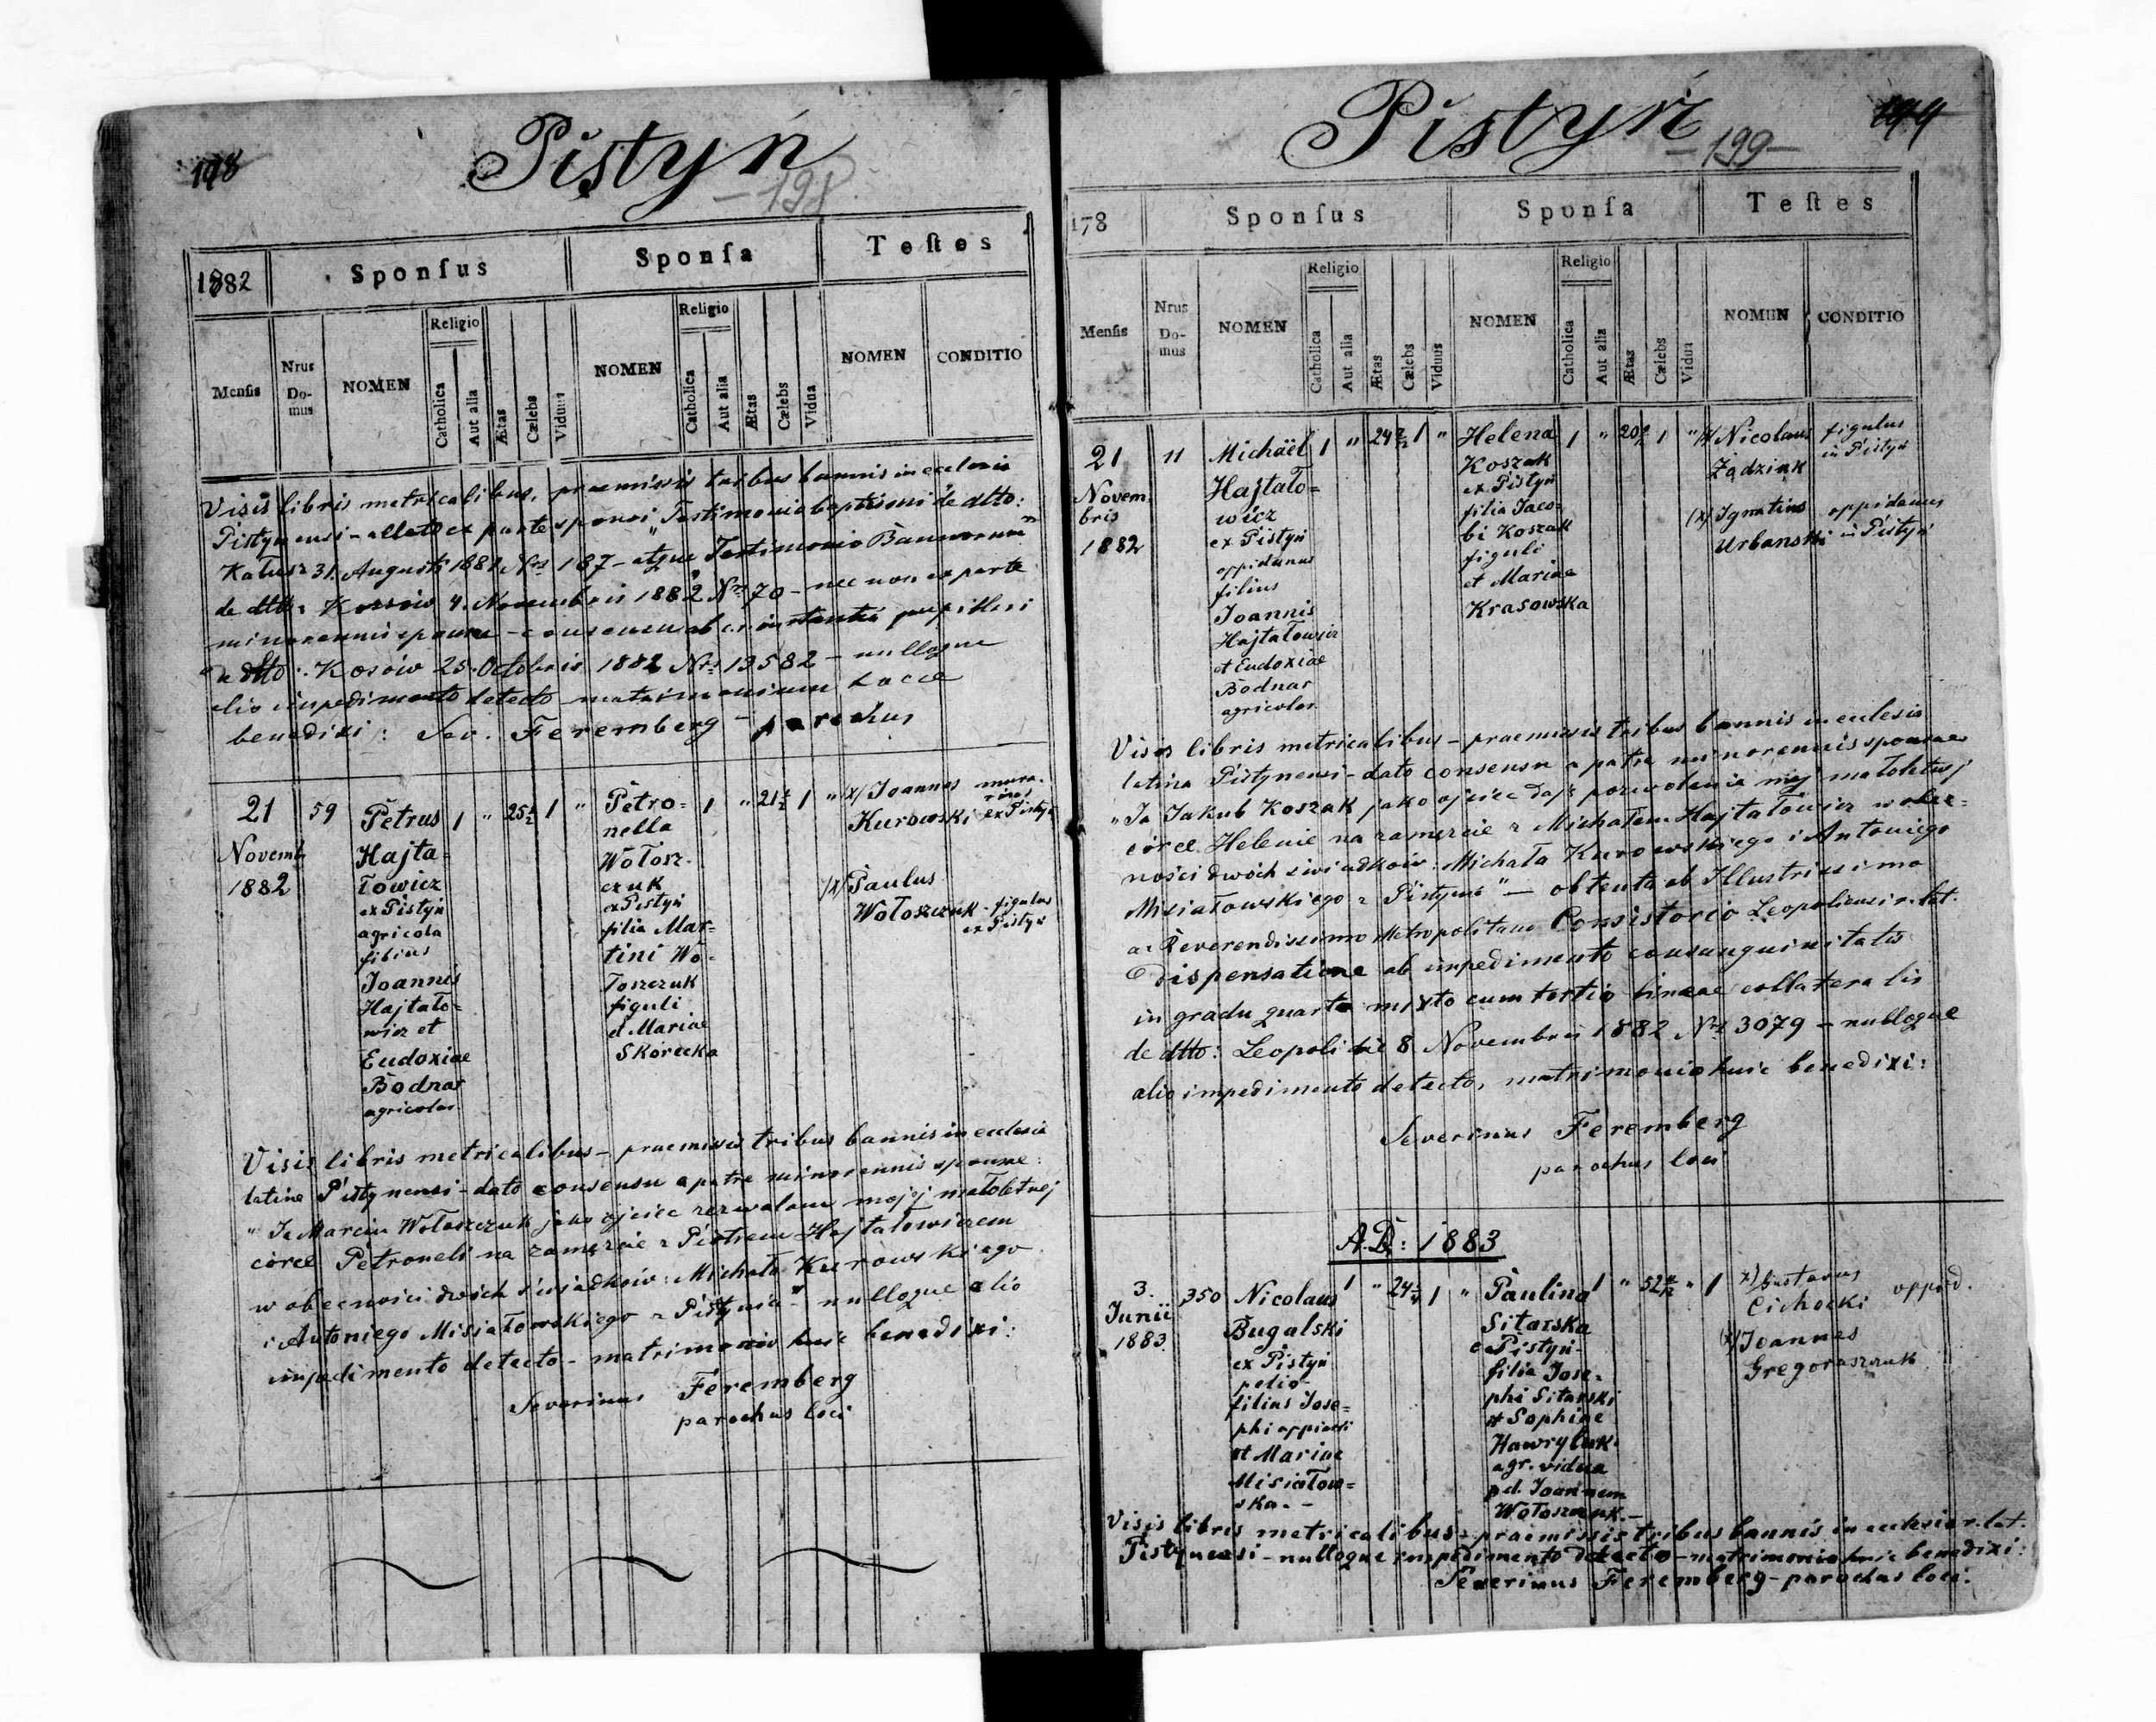 198
Pistyń
- 198
1882
Sponſus
Sponſa
Teſtes
Menſis
Nrus Domus
NOMEN
Religio
Catholica
Aut alia
Ætas
Cælebs
Viduus
NOMEN
Religio
Catholica
Aut alia
Ætas
Cælebs
Vidua
NOMEN
CONDITIO
Visis libris metricalibus, praemissis tribus bannis in ecclesia
Pistynensi - allato ex parte sponsi Testimonio baptismi de dtto:
Kałusz 31. Augusti 1881 Nro 187 - atque Testimonio Bannorum
de dtto: Kossów 4. Novembris 1882 Nro 70 - nec non ex parte
minorennis sponsae - consensu ab instantia pupillari
de dtto: Kosów 25. Octobris 1882 Nro 13582 - nulloque
alio impedimento detecto - matrimonium
benedixi: Sev. Feremberg - parochus
21
Novemb
1882
59
Petrus
Hajta=
łowicz
ex Pistyń
agricola
filius
Joannis
Hajtało=
wicz et
Eudoxiae
Bodnar
agricolar
1 " 25 1/2 1 "
Petro=
nella
Wołosz-
czuk
ex Pistyń
filia Mar=
tini Wo-
łoszczuk
figuli
et Mariae
Skorecka
1 " 21 1/2 1 "
/x/ Joannes
Kurowski
mura-
rius
ex Pistyń
/x/ Paulus
Wołoszczuk - figulus
ex Pistyń
Visis libris metricalibus - praemissis tribus bannis in ecclesia
latina Pistynensi - dato consensu a patre minorennis sponsae:
"Ja Marcin Wołoszczuk jako ojciec zezwalam mojej małoletniej
córce Petroneli na zamęźcie z Piotrem Hajtałowiczem
w obecności dwóch świadków: Michała Kurowskiego
i Antoniego Misiałowskiego z Pistynia" - nulloque alio
impedimento detecto - matrimonio huic benedixi:
Severinus Feremberg
parochus loci
Pistyń
- 199 -
199
178
Sponſus
Sponſa
Teſtes
Menſis
Nrus Domus
NOMEN
Religio
Catholica
Aut alia
Ætas
Cælebs
Viduus
NOMEN
Religio
Catholica
Aut alia
Ætas
Cælebs
Vidua
NOMEN
CONDITIO
21
Novem
bris
1882
11
Michäel
Hajtało=
wicz
ex Pistyń
oppidanus
filius
Joannis
Hajtałowicz
et Eudoxiae
Bodnar
agricolar
1 " 24 1/2 1 "
Helena
Koszak
ex Pistyń
filia Jaco-
bi Koszak
figuli
et Mariae
Krasowska
1 " 20 1 "
/x/ Nicolaus
Żądziak
figulus
in Pistyń
(x) Ignatius
Urbanski
oppidanus
in Pistyń
Visis libris metricalibus - praemissis tribus bannis in ecclesia
latina Pistynensi - dato consensu a patre minorennis sponsae
"Ja Jakub Koszak jako ojciec daję pozwolenie mej małoletniej
córce Helenie na zamęźcie z Michałem Hajtałowicz w obec=
ności dwóch świadków: Michała Kurowskiego i Antoniego
Misiałowskiego z Pistynia" - obtenta ab Illustrissimo
ac Reverendissimo Metropolitano Consistorio Leopoliensi r. lat.
Dispensatione ab impedimento consanguinitatis
in gradu quarto mixto cum tertio lineae collateralis
de dtto: Leopoli die 8 Novembris 1882 Nro 3079 - nulloque
alio impedimento detecto, matrimonio huic benedixi:
Severinus Feremberg
parochus loci
A.D: 1883
3.
Junii
1883.
350
Nicolaus
Bugalski
ex Pistyń
pelio
filius Jose=
phi oppidani
et Mariae
Misiałow=
ska. -
1 " 24 1 "
Paulina
Sitarska
e Pistyń-
filia Jose-
phi Sitarski
et Sophiae
Hawryluk
agr. vidua
pd. Joannem
Wołoszczuk. -
1 " 52 " 1
x) Gustavus
Cichocki
oppid.
(x) Joannes
Gregoraszczuk
Visis libris metricalibus - praemissis tribus bannis in ecclesia r. lat.
Pistynensi - nulloque impedimento detecto - matrimonio huic benedixi:
Severinus Feremberg - parochus loci.